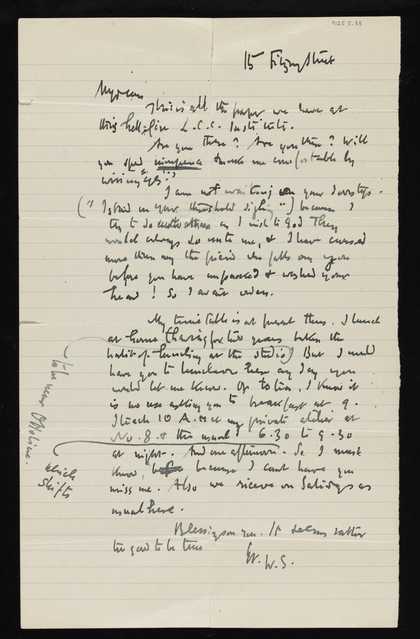 15 Fitzroy Street
this is all the paper we have at
this hell-fire L.C.C. Institute.
Are you there? Are you then? Will
you & make me comfortable by
I am not waiting on your doorstep.
("I stand on your threshold sighing") because I
try to do as I wish to God They
would always do unto me, & I have cursed
more than any the friend who falls on you
before you have unpacked & washed your
head! So I await orders.
My time table is at present thus. I lunch
at home (having for two years taken the
habit of lunching at the studio) But I could
have you to luncheon there any day you
would let me know. Of to tea, I know it
is no use asking you to breakfast at 9.
I teach 10 A.M. at my private atelier at
No. 8. & then usual 6.30 to 9.30
at night. And one afternoon. So I must
know, because I cant have you
miss me. Also we receive on Saturdays as
usual here.
Blessings on you. It seems rather
too good to be true
W. S.
to be near
which
shifts